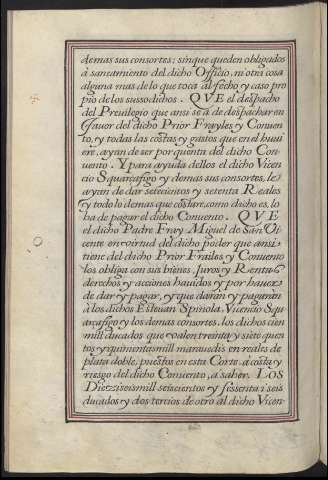 demas sus consortes; sin que queden obligados
à saneamiento del dicho Officio, ni otra cosa
alguna mas de lo que toca al fecho, y caso pro
pio de los susso dichos. QVE el despacho
del Previlegio que ansi se à de despachar en
favor del dicho Prior Frayles y Conuen
to, y todas las costas y gastos que en el huui
ere, ayan de ser por quenta del dicho Con
uento. Y para ayuda dellos el dicho Vicen
cio Squarçafigo y demas sus consortes, le
ayan de dar setecientos y setenta Reales
y todo lo demas que costare, como dicho es, lo
ha de pagar el dicho Conuento. QVE
el dicho Padre Fray Miguel de San Vi
cente en virtud del dicho poder que ansi
tiene del dicho Prior Frailes y Conuento
los obliga con sus bienes, Juros y Rentas
derechos y acciones hauidos y por hauer
de dar y pagar, y que daràn y pagaràn
à los dichos Esteuan Spinola, Vicencio Squ
arçafigo y los demas consortes, los dichos cien
mill ducados que valen treinta y siete quen
tos y quinientos mill marauedis en reales de
plata doble, puestos en esta Corte à costa y
riesgo del dicho Conuento, à saber. LOS
Diez y seis mill seiscientos y sessenta i seis
ducados y dos tercios de otro al dicho Vicen